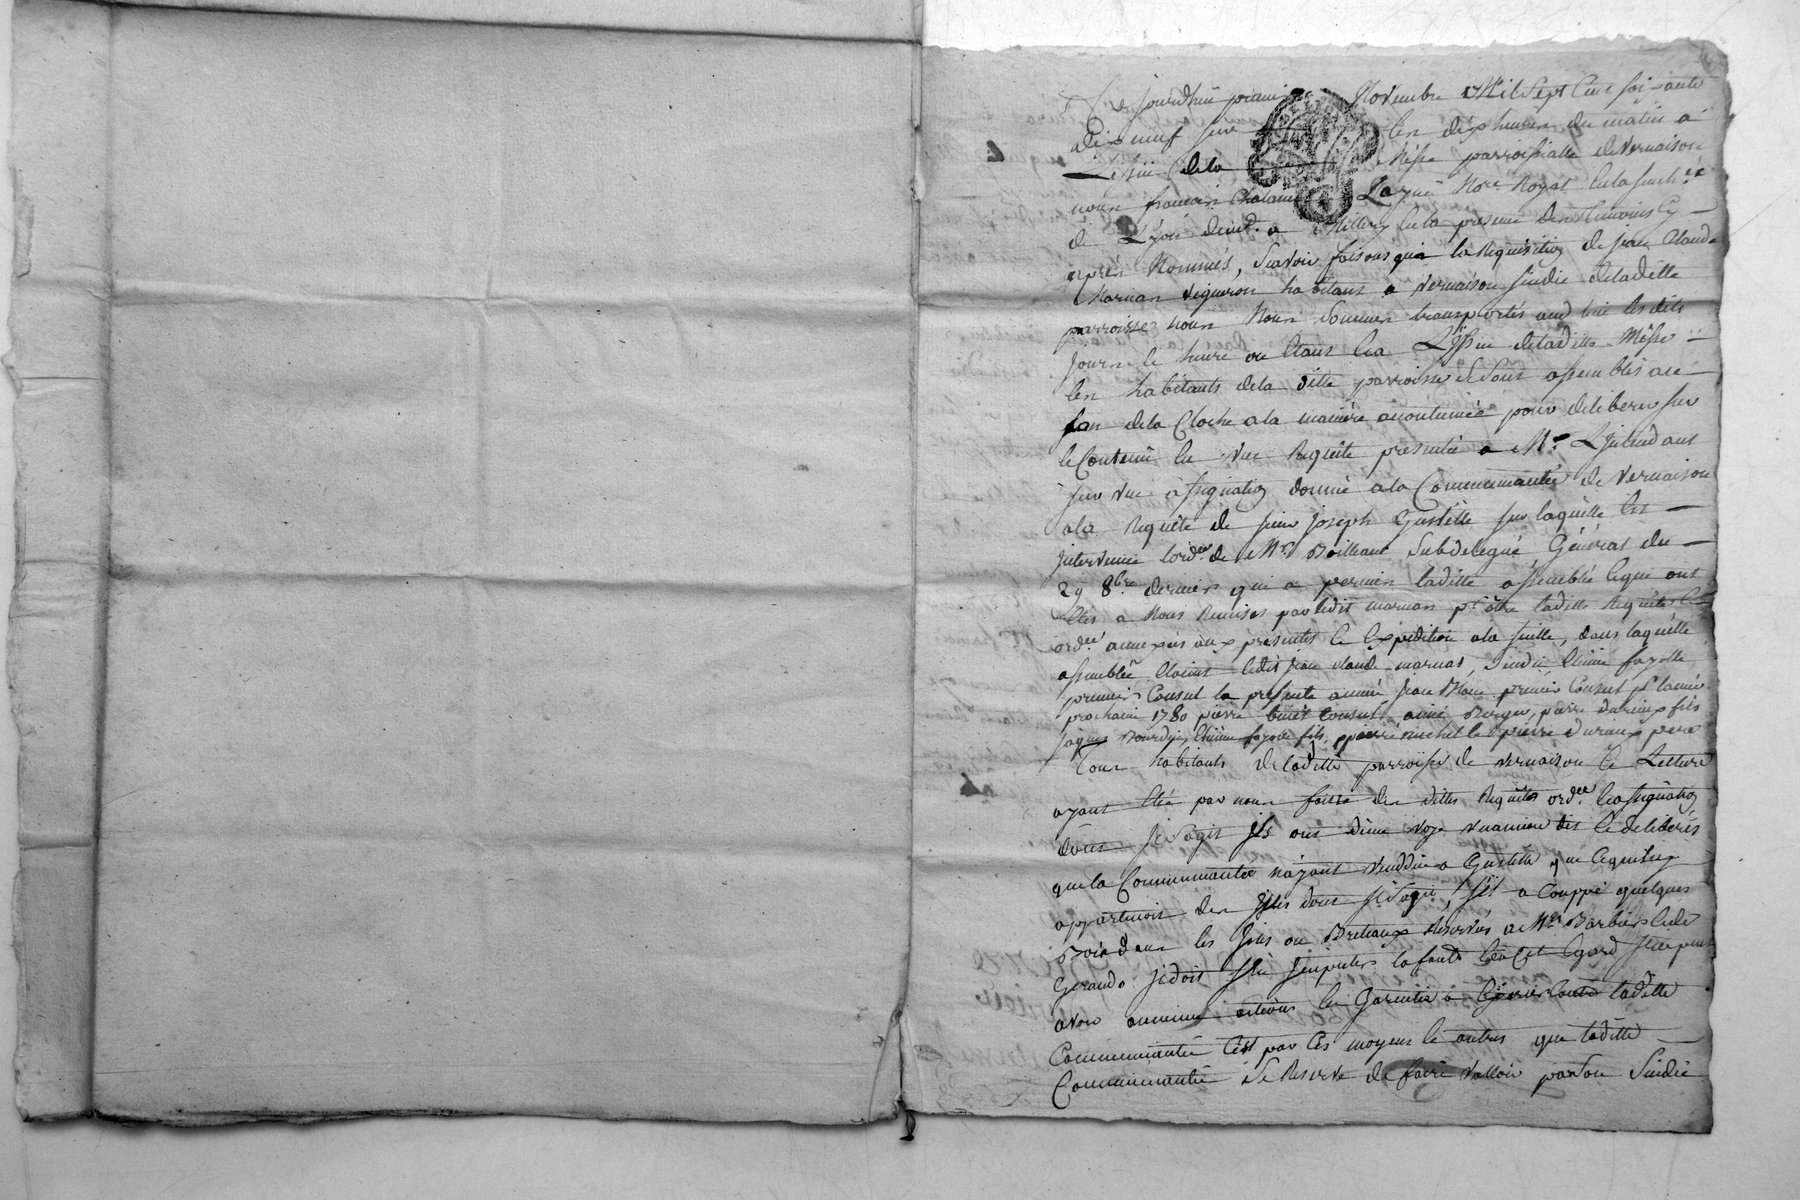 Ce jourdhui premier Novembre Mil Sept Cent soixante
dix neuf sur les dix heures du matin a
L'issüe de la Messe parroissialle de vernaison
nous françois Laquë Nore Royal en la senchée
de Lyon demt a Millery en la presence des temoins cy
après Nommés, Scavoir faisons qu'a la Requisition de jean Claude
Marnas vigneron habitant a vernaison sindic de ladite
parroisse nous Nous sommes transportés aud lieu lesdits
jours et heure ou etant et a L'issüe de ladite Messe
les habitants de la ditte parroisse se sont assemblés au
son de la Cloche a la manière accoutumée pour deliberer sur
le Contenu en une Requête presentée a Mr L'jntendant
sur une assignation donnée a la Communauté de vernaison
a la Requête de sieur joseph Gustelle sur laquelle est
jntervenüe l'ordce de Mr Boilleau Subdelegué Général du
29 8bre dernier qui a permis ladite assemblée lequi ont
etés a Nous Remises par ledit marnas pr être ladite Requête et
ordce annexées aux presentes et Expedition a la suitte, dans laquelle
assemblée etoient ledit jean claude marnas, sindic Etienne fayolle
premier Consul la presente année jean Blanc premier Consul pr l'année
prochaine 1780 pierre Consul aimé Berger, pierre dureux fils
jaques Bourdin, Etienne fayolle fils, pierre michel et pierre dureux pere
Tous habitants de ladite parroisse de vernaison et Lecture
ayant été par nous faitte des dittes Requête ordce et assignation
dont il s'agit jls ont d'une voye unanime dit et deliberés
que la Communauté n'ayant vendüe a Gustelle que ce qui luy
appartenoit des jsles dont il s'agit, s'il a Couppé quelques
bois dans les jsles ou Breteaux Reservés a Mr Barbier et de
Gerando il doit s'en jmputer la faute et a cet Egard il ne peut
avoir aucune action en Garentie a Exercer contre ladite
Communauté C'est par ces moyens et autres que ladite
Communauté Se Reserve de faire valloir par son Sindic